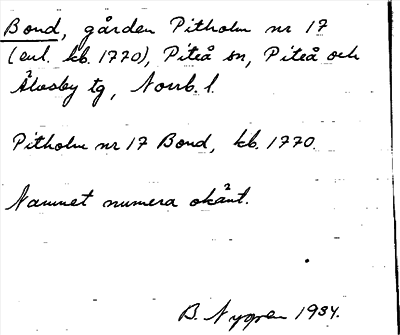 Bond, gården Pitholm nr 17
(enl. kb. 1770), Piteå sn, Piteå och
Älvsby tg, Norrb. l.
Pitholm nr 17 Bond, kb. 1770.
Namnet numera okänt.
B. Nygren 1934.